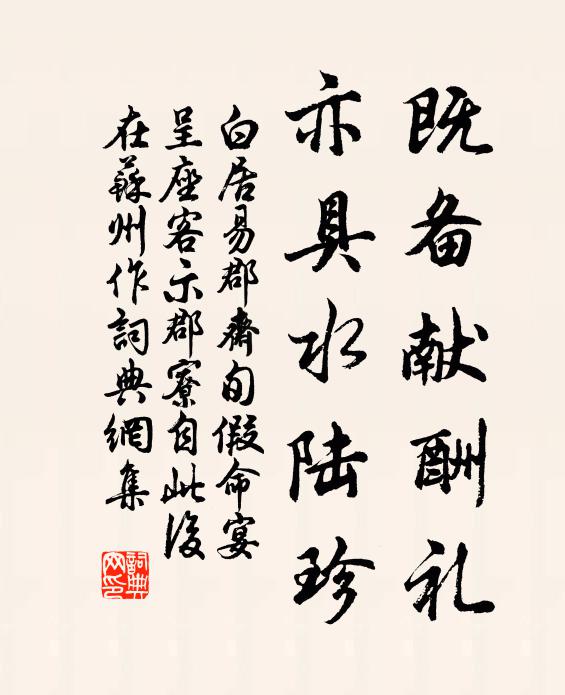 既备献酬礼
亦具水陆珍
白居易郡齋旬假命宴
呈座客示郡寮自此後
在蘇州作詞典網集
詞典
网印